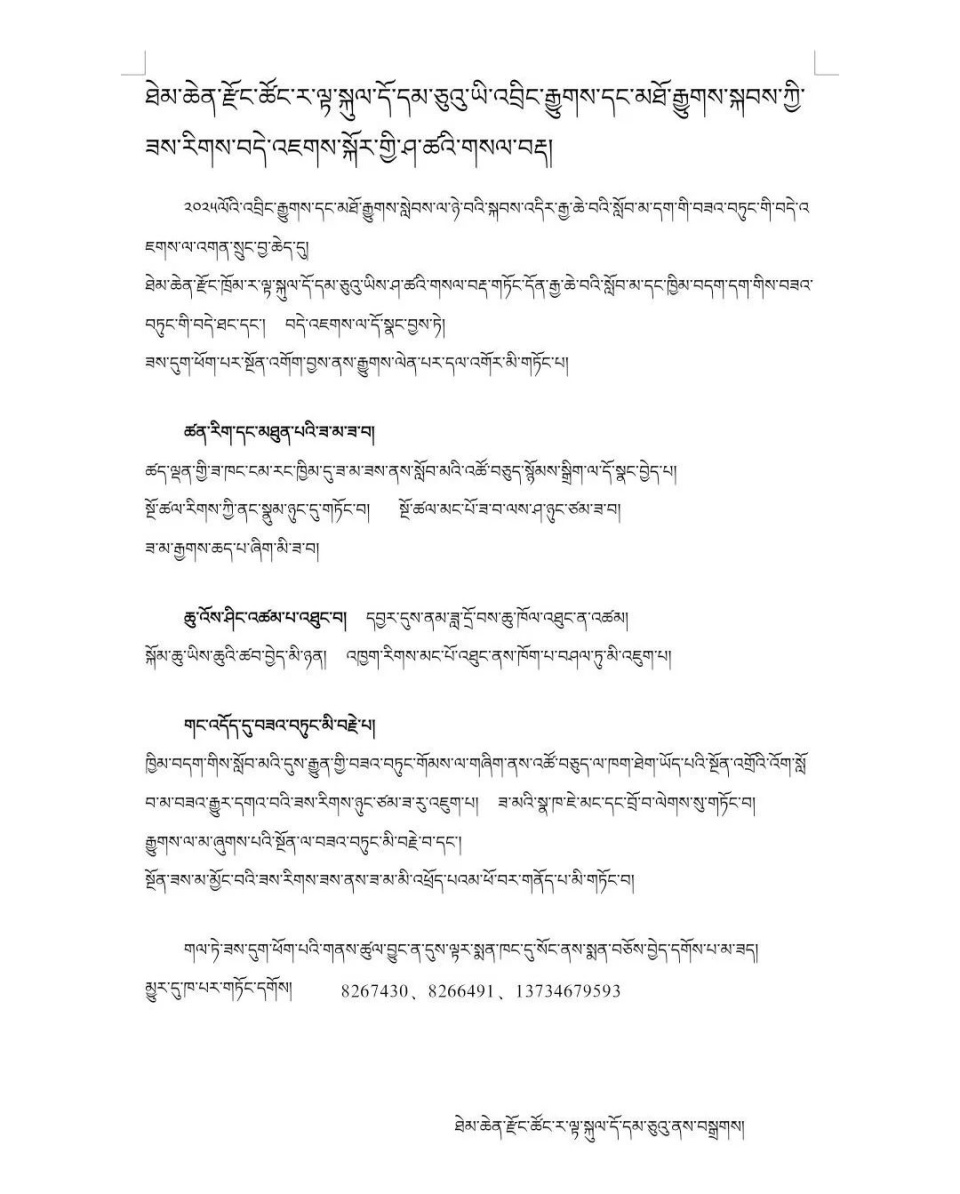 ཐེམ་ཆེན་རྫོང་ཚོང་ར་ལྟ་སྐུལ་དོ་དམ་ཅུའུ་ཡི་འབྲིང་རྒྱུགས་དང་མཐོ་རྒྱུགས་སྐབས་ཀྱི་
ཟས་རིགས་བདེ་འཇགས་སྐོར་གྱི་ཤ་ཚའི་གསལ་བརྡ།
༢༠༢༥ལོའི་འབྲིང་རྒྱུགས་དང་མཐོ་རྒྱུགས་སླེབས་ལ་ཉེ་བའི་སྐབས་འདིར་རྒྱ་ཆེ་བའི་སློབ་མ་དག་གི་བཟའ་བཏུང་གི་བདེ་འ
ཇགས་ལ་འགན་སྲུང་བྱ་ཆེད་དུ།
ཐེམ་ཆེན་རྫོང་ཁྲོམ་ར་ལྟ་སྐུལ་དོ་དམ་ཅུའུ་ཡིས་ཤ་ཚའི་གསལ་བརྡ་གཏོང་དོན་རྒྱ་ཆེ་བའི་སློབ་མ་དང་ཁྱིམ་བདག་དག་གིས་བཟའ་
བཏུང་གི་བདེ་ཐང་དང་། བདེ་འཇགས་ལ་དོ་སྣང་བྱས་ཏེ།
ཟས་དུག་ཕོག་པར་སྔོན་འགོག་བྱས་ནས་རྒྱུགས་ལེན་པར་དལ་འགོར་མི་གཏོང་པ།
ཚན་རིག་དང་མཐུན་པའི་ཟ་མ་ཟ་བ།
ཚད་ལྡན་གྱི་ཟ་ཁང་ངམ་རང་ཁྱིམ་དུ་ཟ་མ་ཟས་ནས་སློབ་མའི་འཚོ་བཅུད་སྙོམས་སྒྲིག་ལ་དོ་སྣང་བྱེད་པ།
སྔོ་ཚལ་རིགས་ཀྱི་ནང་སྣུམ་ཉུང་དུ་གཏོང་བ། སྔོ་ཚལ་མང་པོ་ཟ་བ་ལས་ཤ་ཉུང་ཙམ་ཟ་བ།
ཟ་མ་རྒྱགས་ཆད་པ་ཞིག་མི་ཟ་བ།
ཆུ་འོས་ཤིང་འཚམ་པ་འཐུང་བ། དབྱར་དུས་ནམ་ཟླ་དྲོ་བས་ཆུ་ཁོལ་འཐུང་ན་འཚམ།
སྐོམ་ཆུ་ཡིས་ཆུའི་ཚབ་བྱེད་མི་ཉན། འཁྱག་རིགས་མང་པོ་འཐུང་ནས་ཁོག་པ་བཤལ་ཏུ་མི་འཇུག་པ།
གང་འདོད་དུ་བཟའ་བཏུང་མི་བརྗེ་པ།
ཁྱིམ་བདག་གིས་སློབ་མའི་དུས་རྒྱུན་གྱི་བཟའ་བཏུང་གོམས་ལ་གཞིག་ནས་འཚོ་བཅུད་ལ་ཁག་ཐེག་ཡོད་པའི་སྔོན་འགྲོའི་འོག་སློ
བ་མ་བཟའ་རྒྱུར་དགའ་བའི་ཟས་རིགས་ཉུང་ཙམ་ཟ་རུ་འཇུག་པ། ཟ་མའི་སྣ་ཁ་ཇེ་མང་དང་བྲོ་བ་ལེགས་སུ་གཏོང་བ།
རྒྱུགས་ལ་མ་ཞུགས་པའི་སྔོན་ལ་བཟའ་བཏུང་མི་བརྗེ་བ་དང་།
སྔོན་ཟས་མ་མྱོང་བའི་ཟས་རིགས་ཟས་ནས་ཟ་མ་མི་འཕྲོད་པའམ་ཕོ་བར་གནོད་པ་མི་གཏོང་བ།
གལ་ཏེ་ཟས་དུག་ཕོག་པའི་གནས་ཚུལ་བྱུང་ན་དུས་ལྟར་སྨན་ཁང་དུ་སོང་ནས་སྨན་བཅོས་བྱེད་དགོས་པ་མ་ཟད།
མྱུར་དུ་ཁ་པར་གཏོང་དགོས། 8267430、8266491、13734679593
ཐེམ་ཆེན་རྫོང་ཚོང་ར་ལྟ་སྐུལ་དོ་དམ་ཅུའུ་ནས་བསྒྲགས།